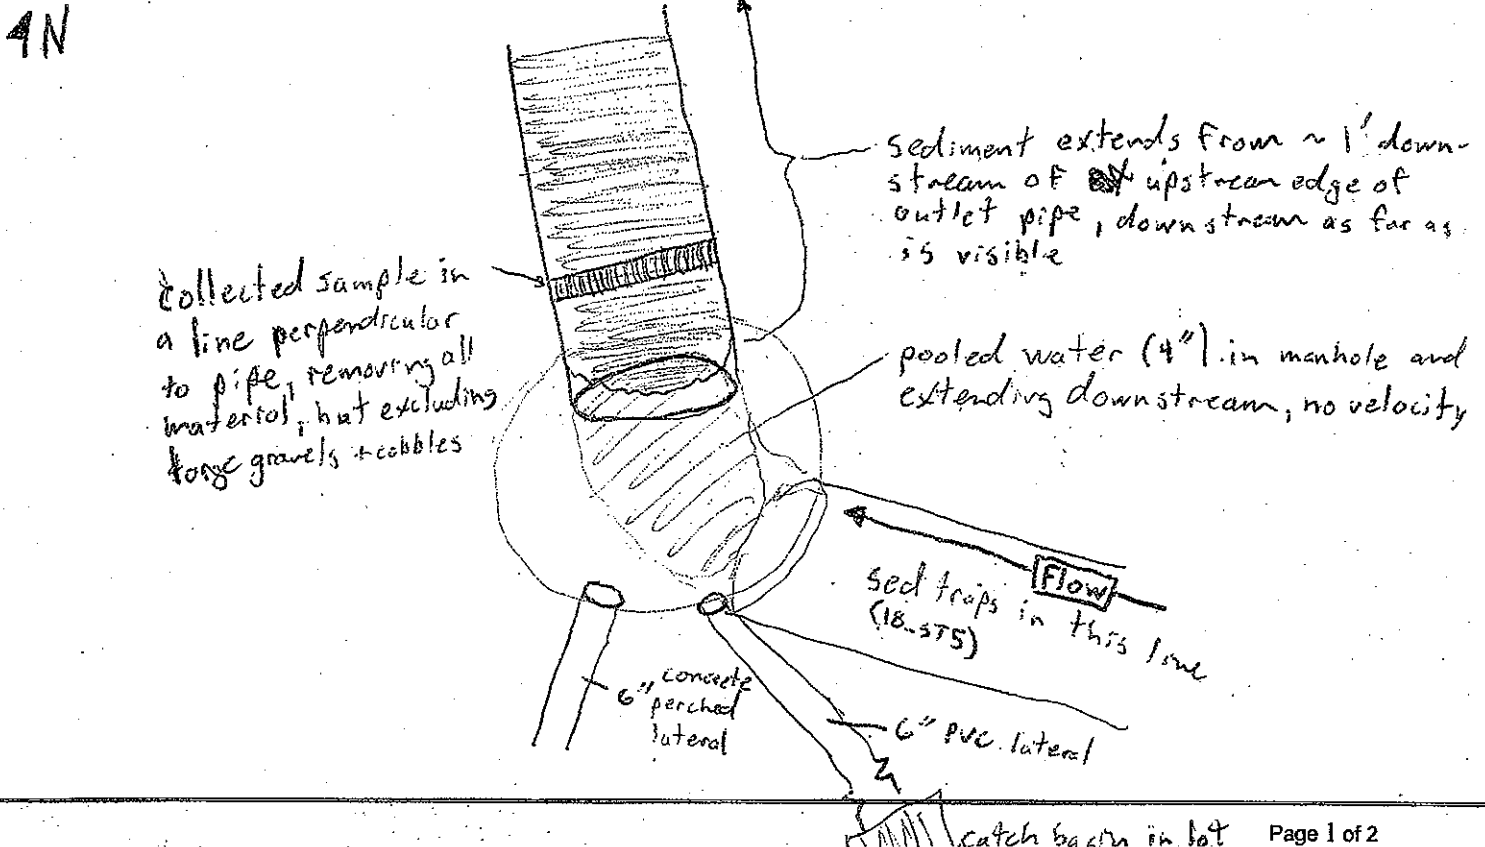 4N
sediment extends from ~ 1' down-
stream of upstream edge of
outlet pipe, downstream as far as
is visible
collected sample in
a line perpendicular
to pipe, removing all
material, but excluding
large gravels + cobbles
pooled water (4") in manhole and
extending downstream, no velocity
Flow
sed traps in this line
(18-ST5)
6" concrete
perched
lateral
6" PVC lateral
catch basin in lot
Page 1 of 2